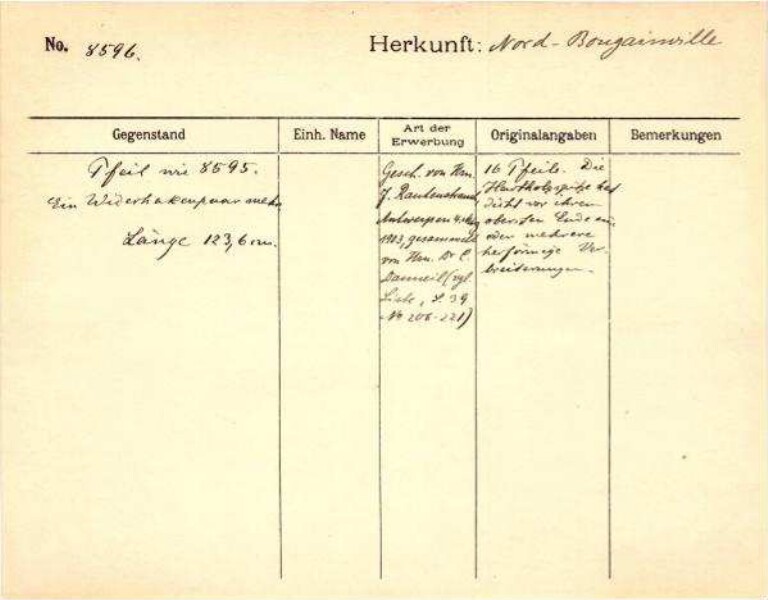 No. 8596. Herkunft: Nord-Bougainville
Gegenstand Einh. Name Art der Erwerbung Originalangaben Bemerkungen
Pfeil wie 8595.
Ein Widerhakenpaar mehr
Länge 123,6 cm.
Gesch. von Hrn.
J. Rautenstrauch
Antwerpen
1903, gesammelt
von Hrn. Dr C.
Danneil (vgl.
Liste, S. 39
No 206-221)
16 Pfeile. Die
Hartholzspitze hat
dicht vor ihrem
obersten Ende ein
oder mehrere
Ver-
breiterungen.